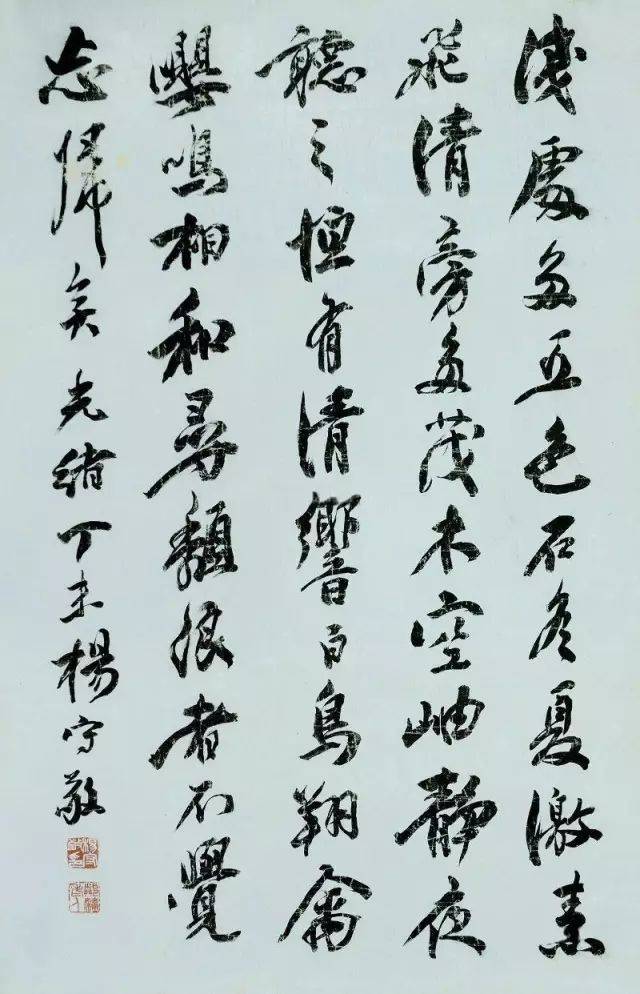 淺處多五色石冬夏激素
飛清旁多茂木空岫靜夜
聽之恒有清響百鳥翔禽
嚶鳴相和尋頹浪者不覺
忘歸矣光緒丁未楊守敬